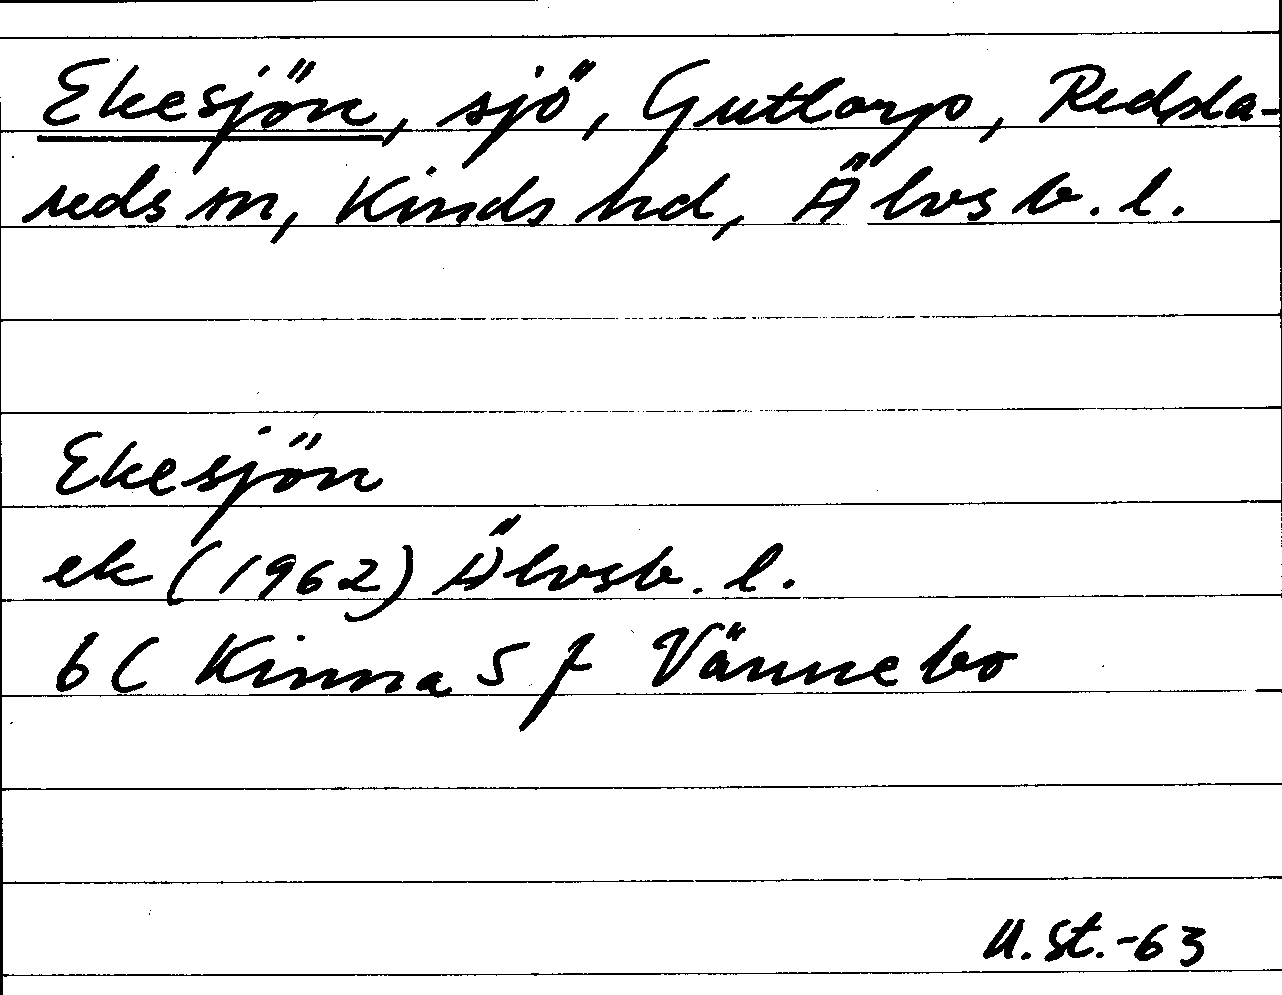 Ekesjön, sjö, Guttorp, Redsla-
reds sn, Kinds hd, Älvsb. l.
Ekesjön
ek (1962) Älvsb. l.
6C Kinna 5 f Vännebo
U.St.-63